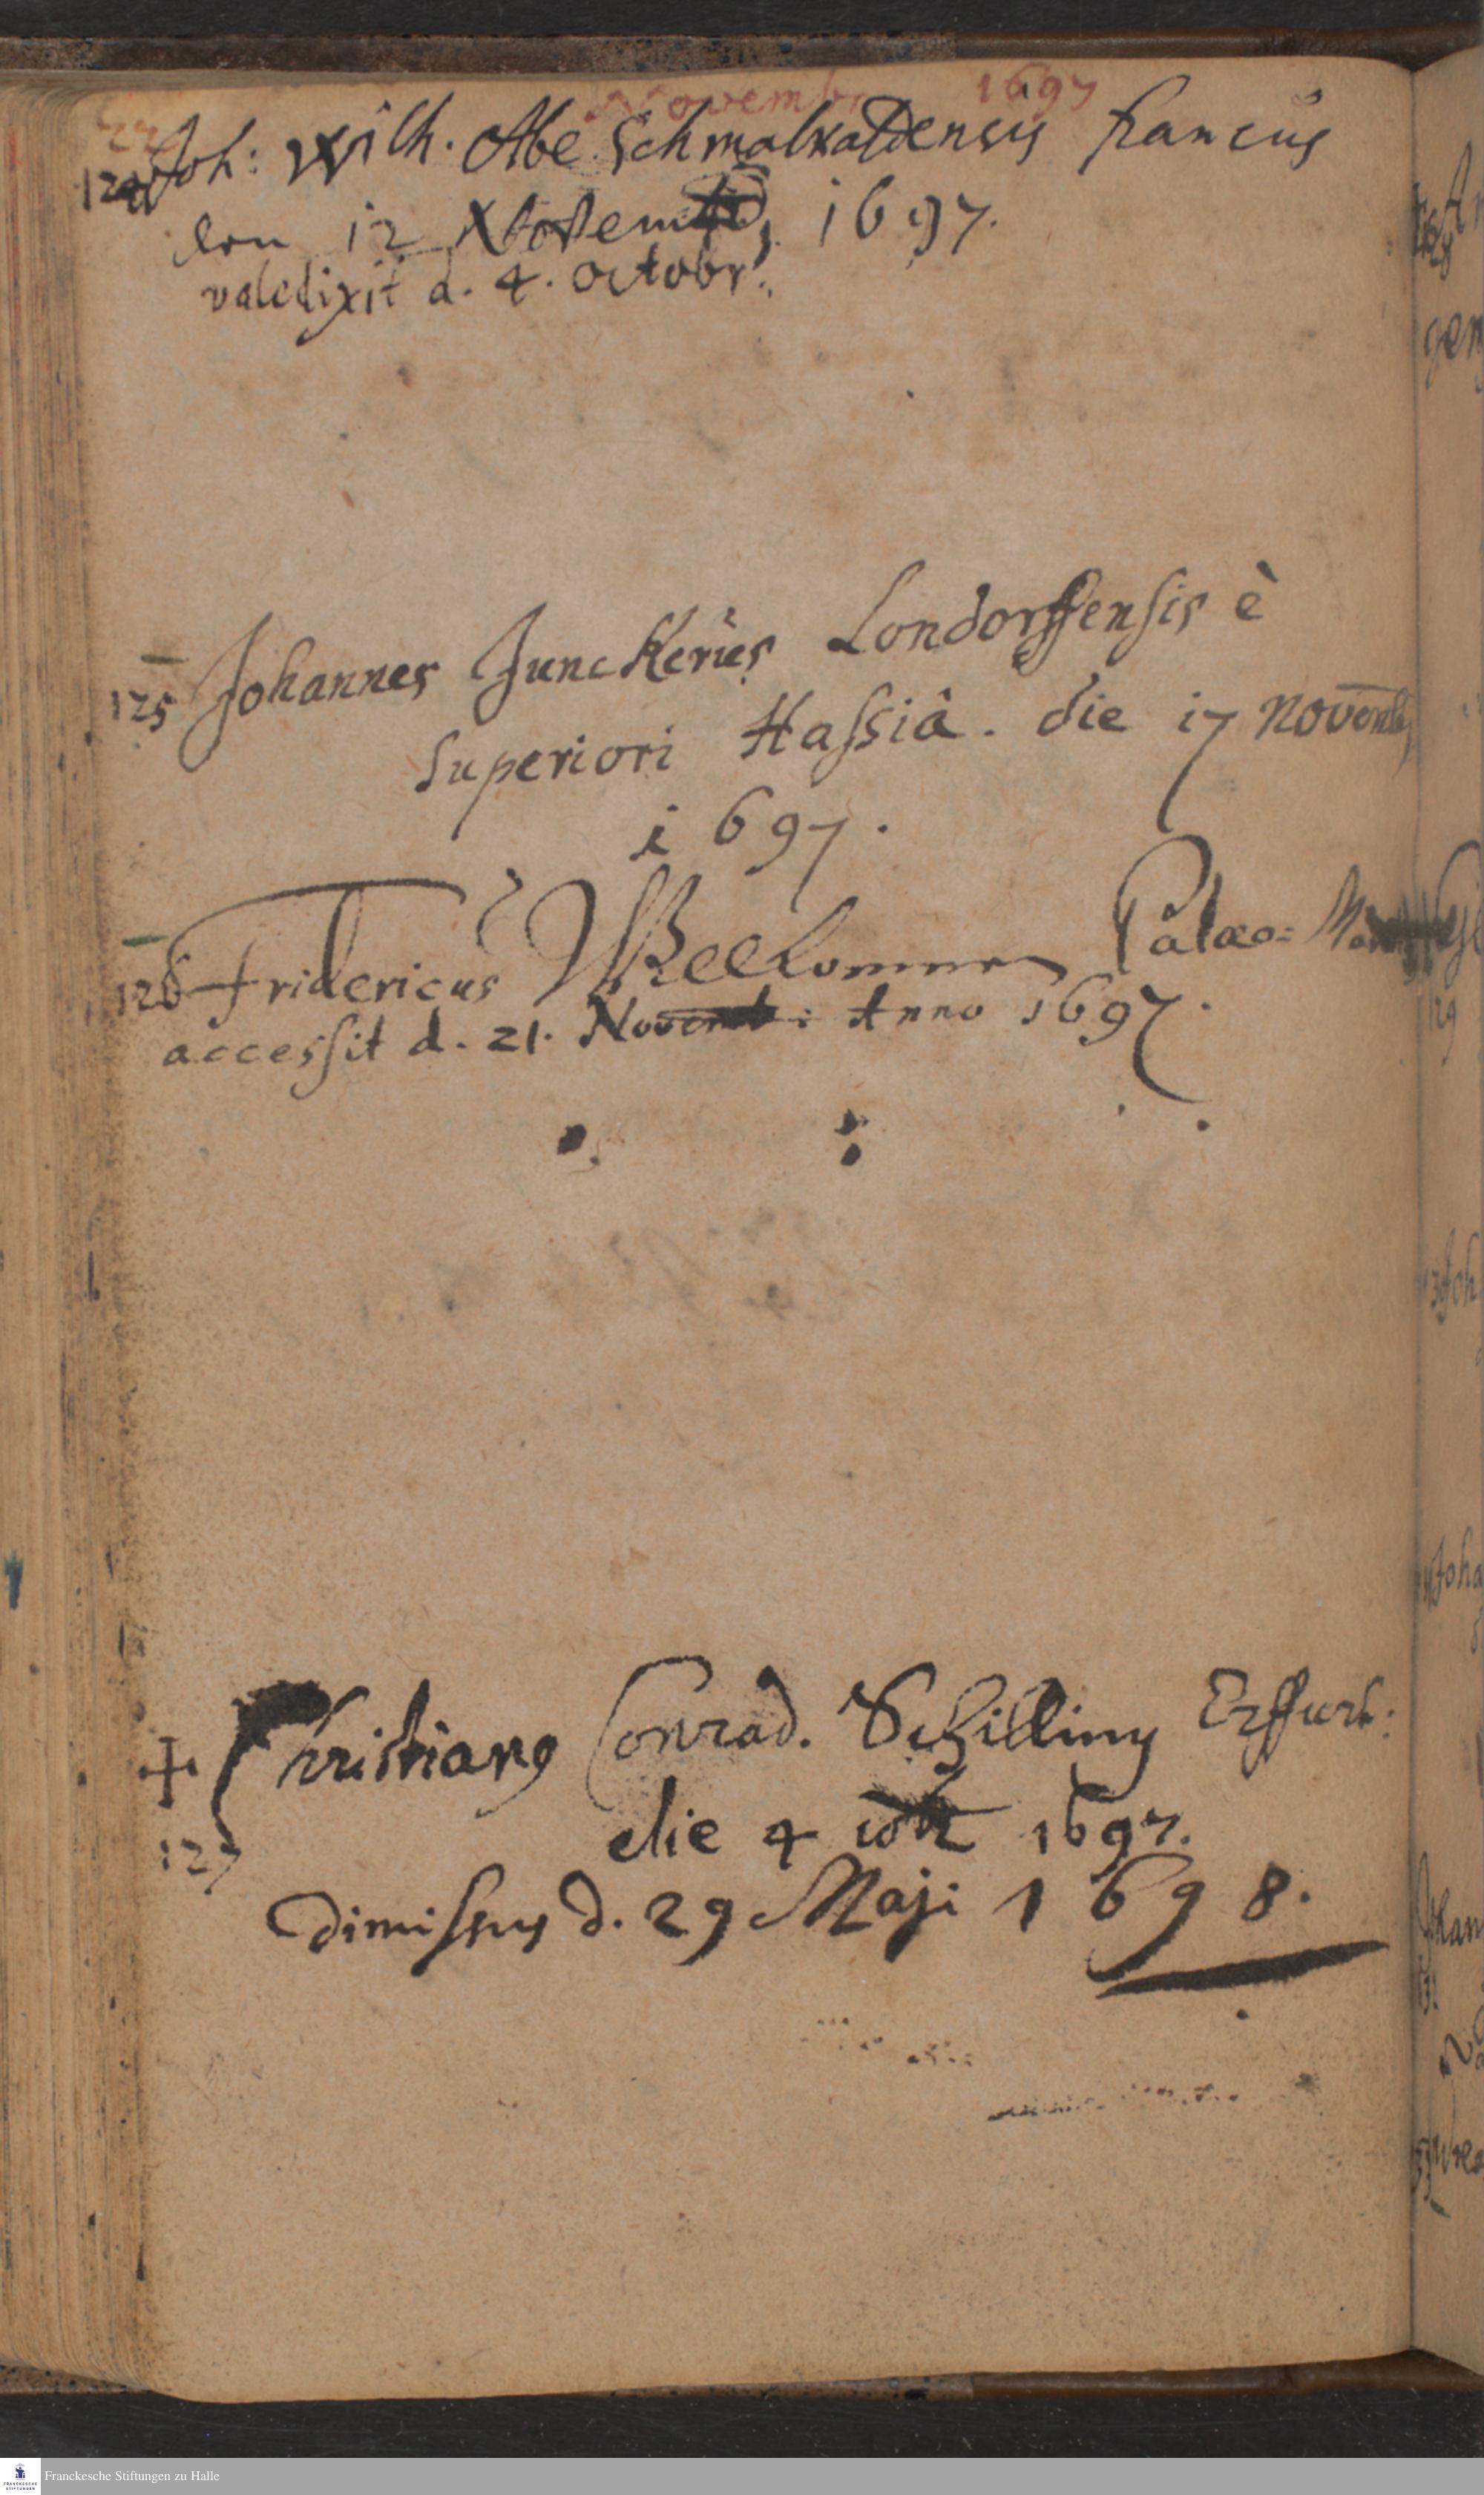 Novembr 1697
124 Joh: Wilh. Abe Schmalkaldensis francus
den 12 Novemb 1697.
valedixit d. 4. Octobr:
125 Johannes Junckerus Londorffensis è
superiori Hassiâ. die 17 Novemb
1697.
126 Fridericus Palæo=
accessit d. 21. Novemb: Anno 1697.
Christiang Conrad. Schilling Erffurt:
127 die 4 1697.
dimissus d. 29 Maji 1698.
Franckesche Stiftungen zu Halle